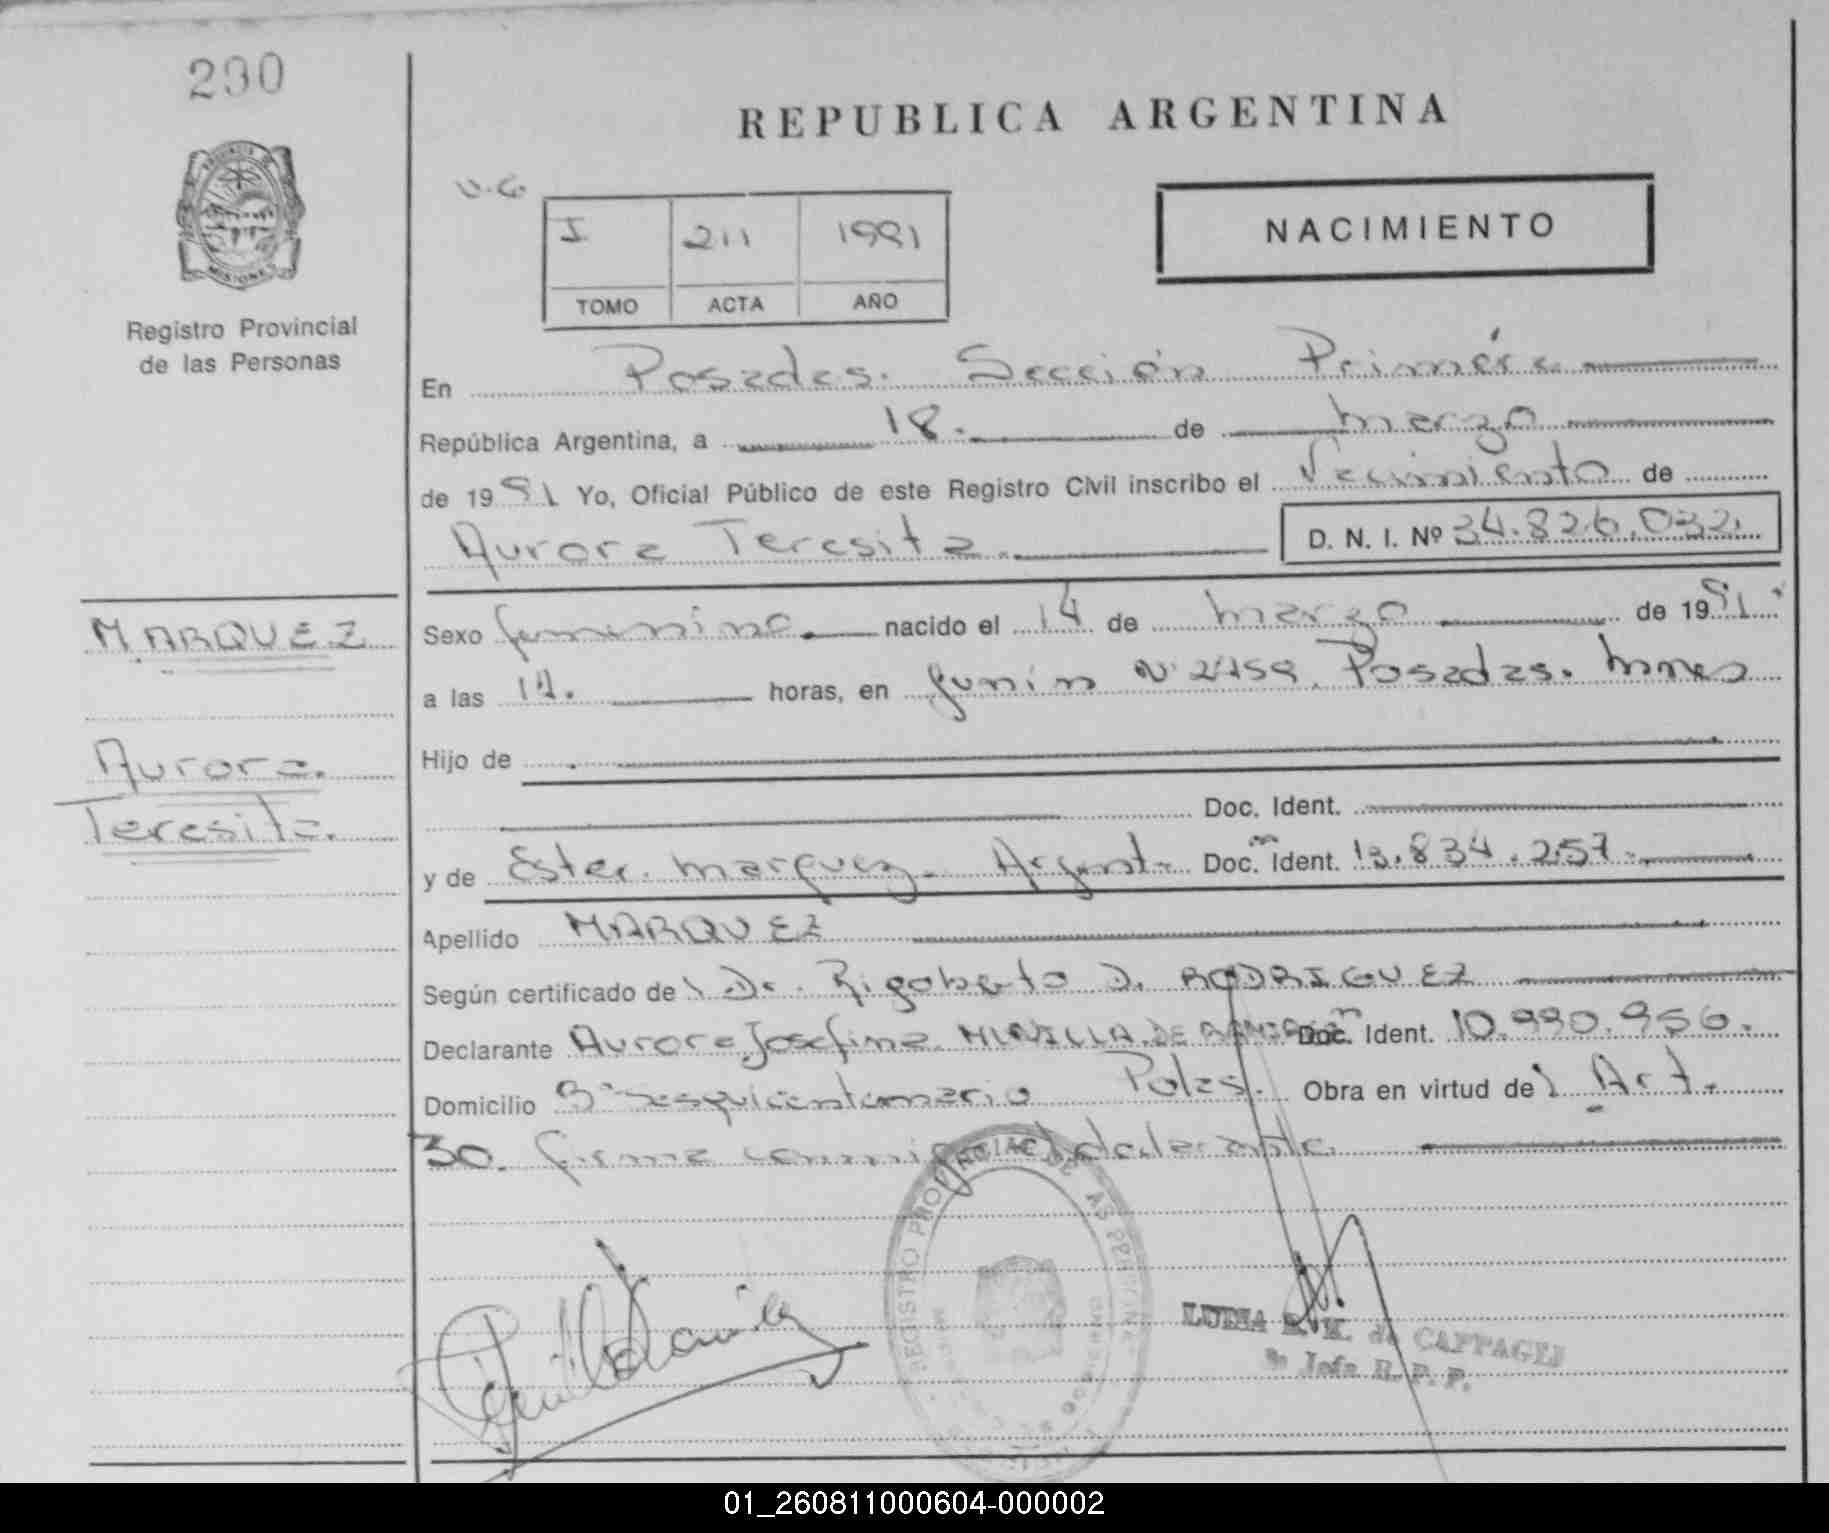 290
REPUBLICA ARGENTINA
PROVINCIA DE MISIONES
Registro Provincial
de las Personas
V.G.
I 211 1991
TOMO ACTA AÑO
NACIMIENTO
En Posadas. Sección Primera
República Argentina, a 18. de marzo
de 1991 Yo, Oficial Público de este Registro Civil inscribo el Nacimiento de
Aurora Teresita. D. N. I. Nº 34.826.032.
MARQUEZ
Aurora.
Teresita.
Sexo femenino. nacido el 14 de marzo de 1991
a las horas, en Junín Nº Posadas. Mnes
Hijo de
Doc. Ident.
y de Ester. Marquez. Argent. Doc. Ident. 13.834.257.
Apellido MARQUEZ
Según certificado del Dr. Rigoberto D. RODRIGUEZ
Declarante Aurora Josefina DE RAMIREZ Doc. Ident. 10.990.956.
Domicilio Bº Sesquicentenario Pdas. Obra en virtud del Art.
30. firma conmigo declarante.
REGISTRO PROVINCIAL DE LAS PERSONAS
de CAPPAGLI
Jefa R. P. P.
01_260811000604-000002